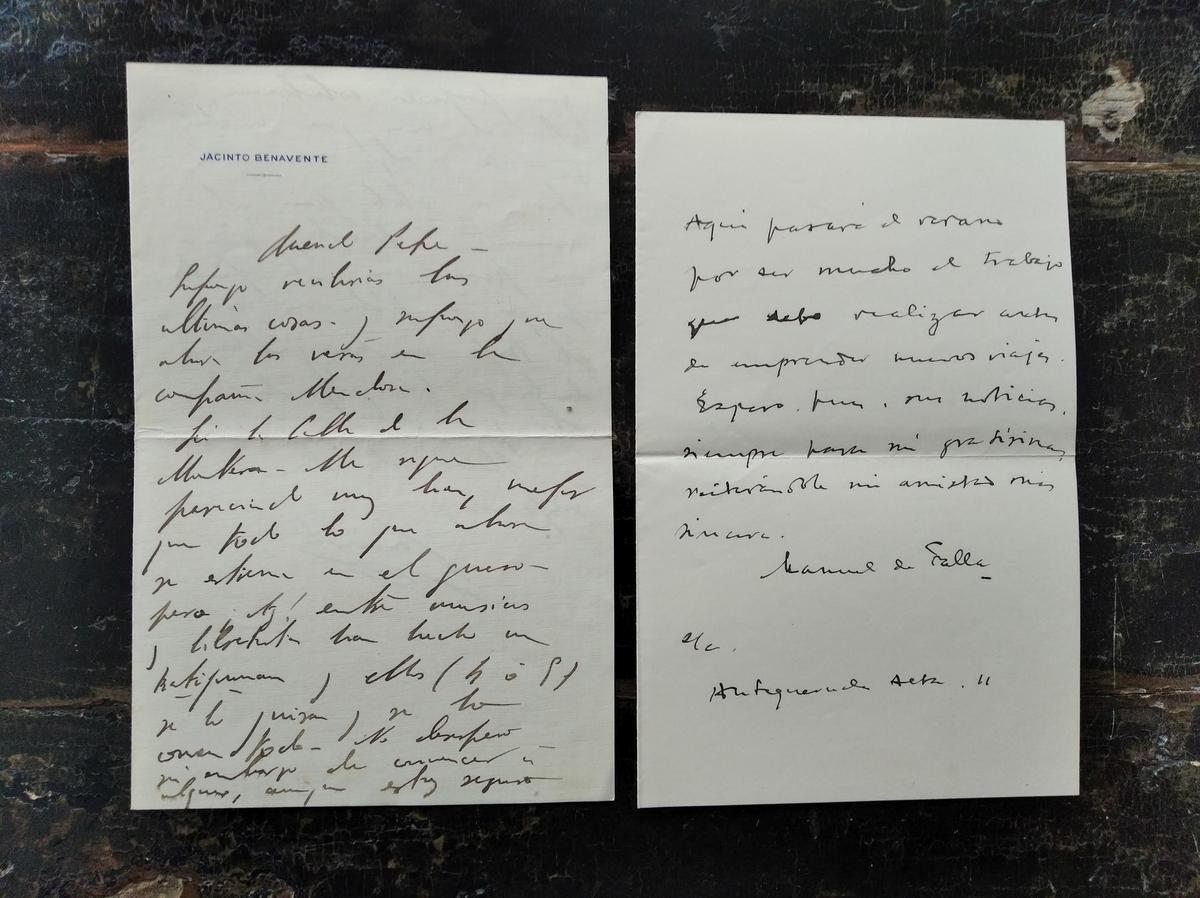 JACINTO BENAVENTE
Querido Pepe -
Supongo recibirías las
últimas cosas - y supongo que
ahora las verás en la
compañía Mendoza.
La Calle de la
Me sigue
pareciendo muy bien, mejor
que todo lo que ahora
se estrena en el género -
pero ¡ay! entre músicos
y libretistas han hecho un
katipunan y ellos (4 ó 5)
se lo guisan y se lo
comen todo - No desespero
sin embargo de convencer á
alguno, aunque estoy seguro
Aquí pasaré el verano
por ser mucho el trabajo
que debo realizar antes
de emprender nuevos viajes.
Espero, pues, sus noticias,
siempre para mí gratísimas,
reiterándole mi amistad más
sincera.
Manuel de Falla
s/c.
Antequeruela Alta, 11